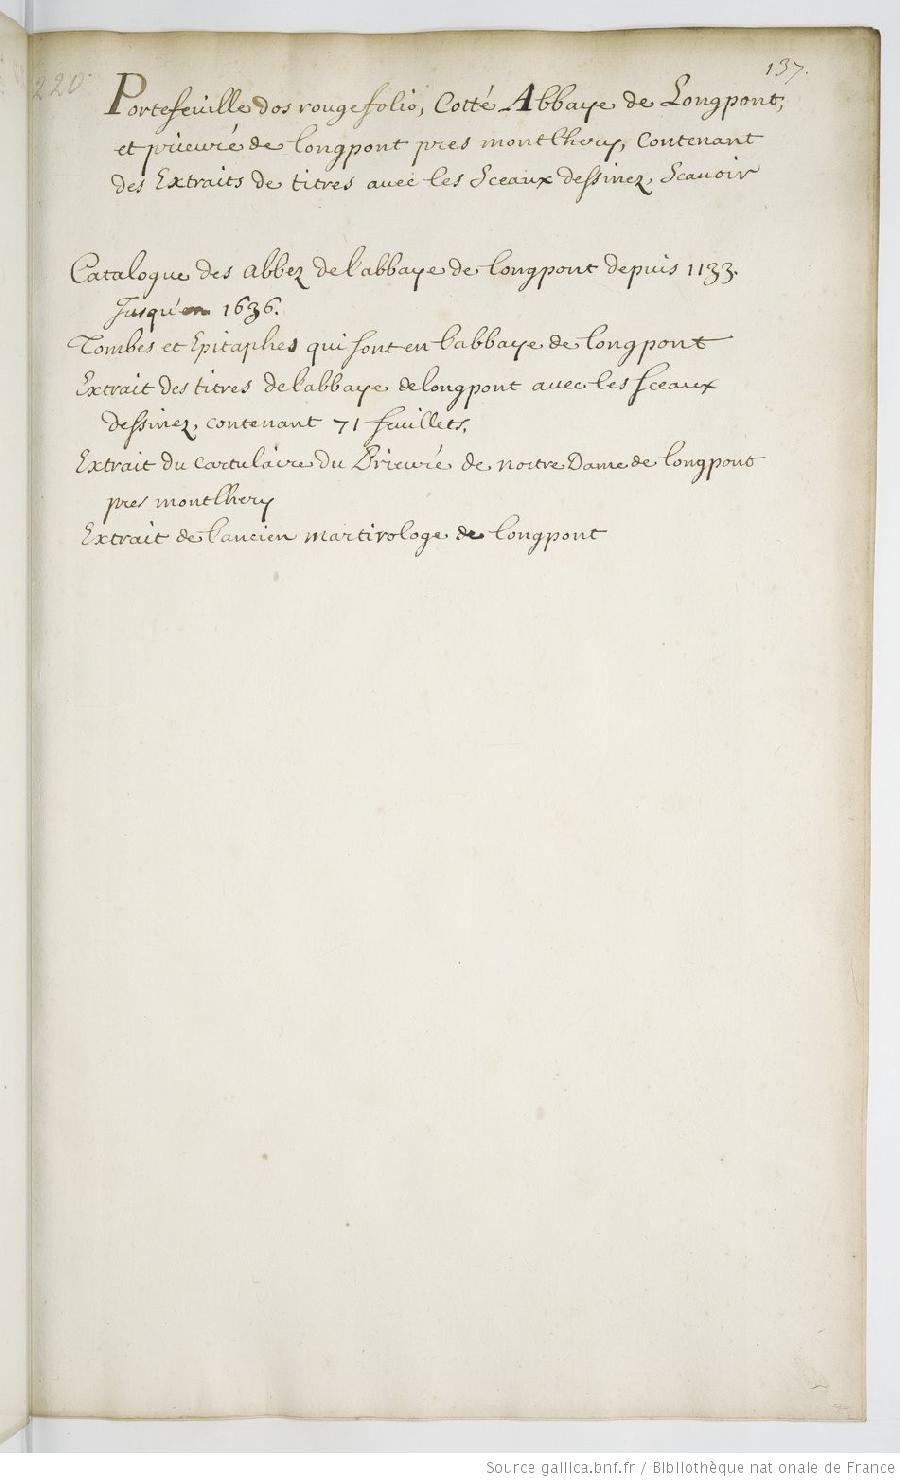 220.
137.
Portefeuille dos rouge folio, Cotté Abbaye de Longpont,
et prieuré de longpont pres montlhery, Contenant
des Extraits de titres avec les Sceaux dessinez, Scavoir
Catalogue des abbez de l'abbaye de longpont depuis 1133.
Jusqu'en 1636.
Tombes et Epitaphes qui sont en l'abbaye de longpont
Extrait des titres de l'abbaye de longpont avec les sceaux
dessinez, contenant 71 feuillets.
Extrait du Cartulaire du Prieuré de nostre Dame de longpont
pres montlhery
Extrait de l'ancien martirologe de longpont
Source gallica.bnf.fr / Bibliothèque nationale de France